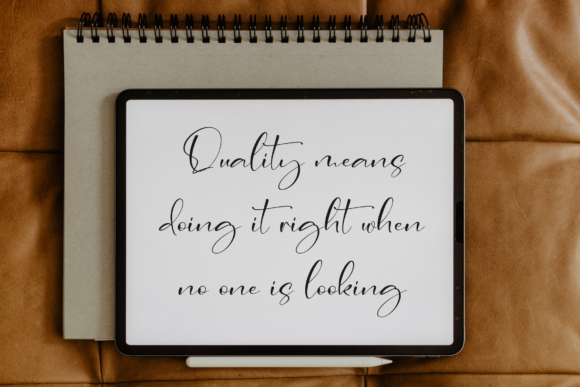 Quality means
doing it right when
no one is looking